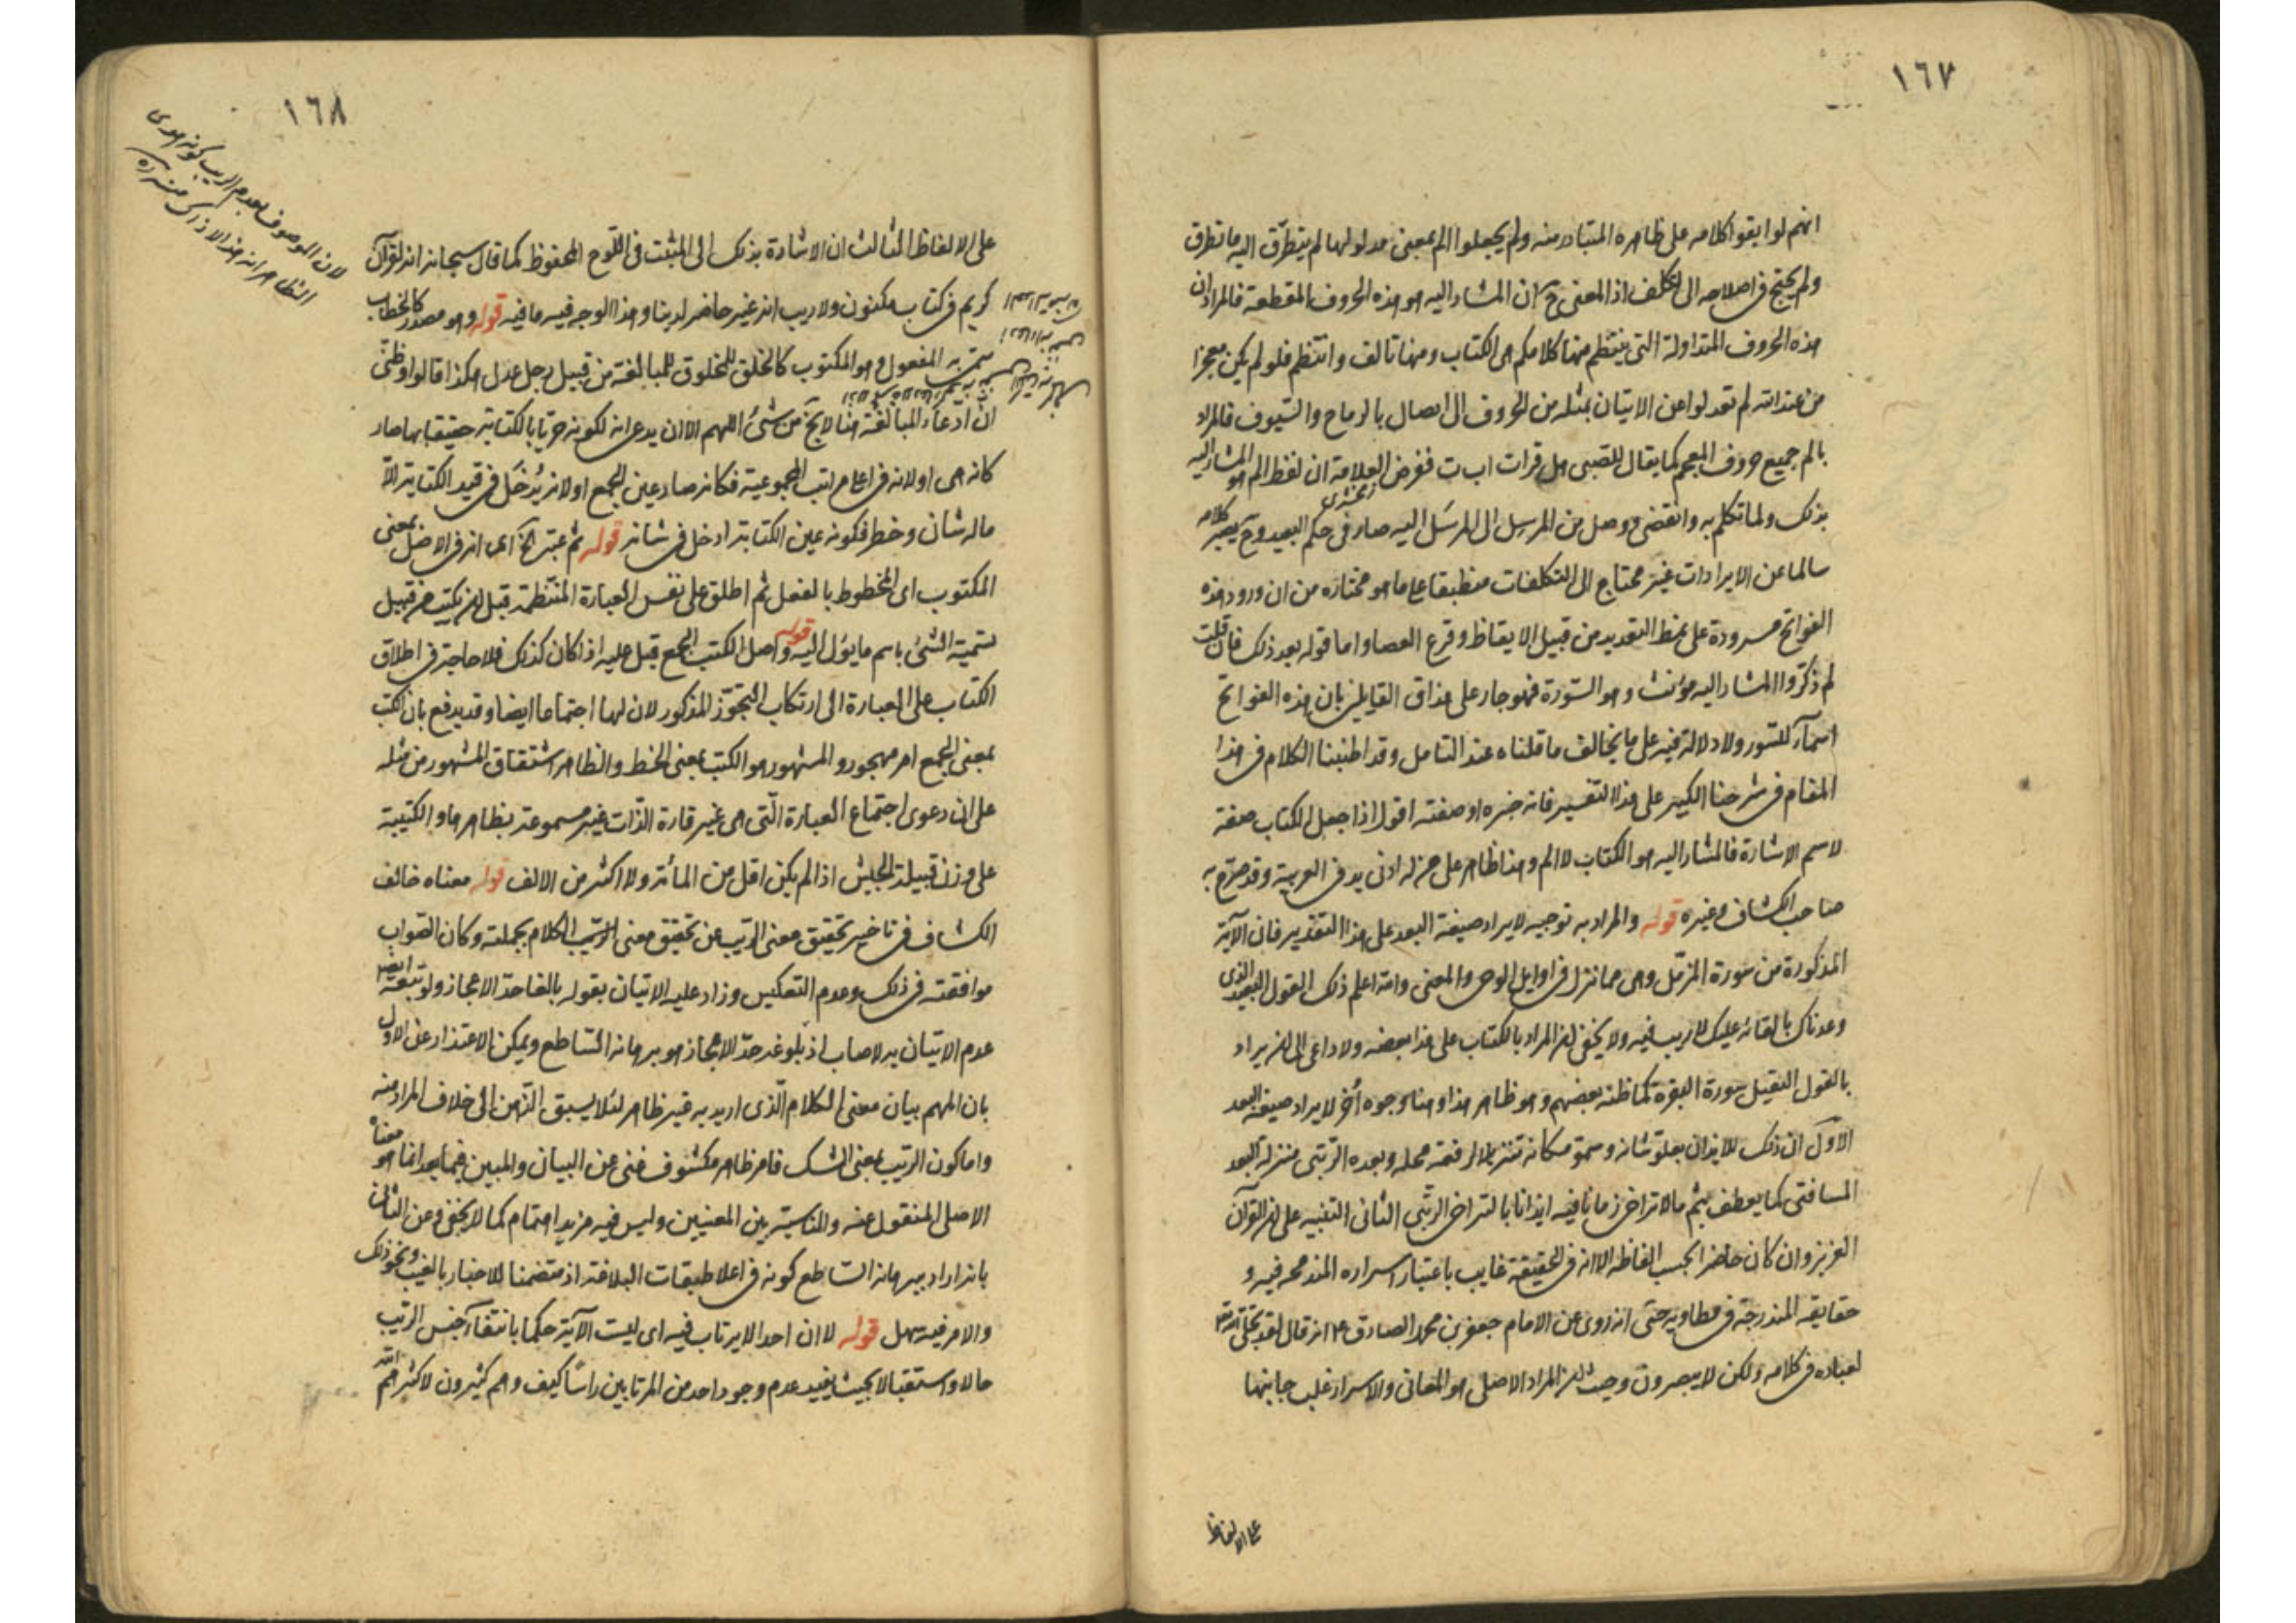 ١٦٧
انهم لو ابقوا كلامه على ظاهره المتبادر منه ولم يجعلوا الم بمعنى مدلولها لم يتطرق اليه ما تطرق
ولم يحتج فى اصلاحه الى التكلف اذ المعنى ح ان المشار اليه هو هذه الحروف المقطعة فالمراد ان
هذه الحروف المتداولة التى ينتظم منها كلامكم هى الكتاب ومنها تالف وانتظم فلو لم يكن معجزا
من عند الله لم تعدلوا عن الاتيان بمثله من الحروف الى ايصال بالرماح والسيوف فالمراد
بالم جميع حروف المعجم كما يقال للصبى هل قرات ا ب ت فغرض العلامة ان لفظ الم هو المشار اليه
زمخشرى
بذلك ولما تكلم به وانقضى ووصل من المرسِل الى المرسَل اليه صار فى حكم البعيد وح يصير كلامه
سالما عن الايرادات غير محتاج الى التكلفات منطبقا على ما هو مختاره من ان ورود هذه
الفواتح مسرودة على نمط التعديد من قبيل الايقاظ وقرع العصا واما قوله بعد ذلك فان قلت
لم ذكروا المشار اليه مؤنث وهو السورة فهو جار على مذاق القايلين بان هذه الفواتح
اسمآء للسور ولا دلالة فيه على ما يخالف ما قلناه عند التامل وقد اطنبنا الكلام فى هذا
المقام فى شرحنا الكبير على هذا التفسير فانه خبره او صفته اقول اذا جعل الكتاب صفة
لاسم الاشارة فالمشار اليه هو الكتاب لا الم وهذا ظاهر على من له ادنى يد فى العربية وقد صرح به
صاحب الكشاف وغيره قوله والمراد به توجيه لايراد صيغة البعد على هذا التقدير فان الآية
المذكورة من سورة المزمل وهى مما نزل فى اوايل الوحى والمعنى والله اعلم ذلك القول البعيد الذى
وعدناك بالقائه عليك لا ريب فيه ولا يخفى ان المراد بالكتاب على هذا بعضه ولا داعى الى ان يراد
بالقول الثقيل سورة البقرة كما ظنه بعضهم وهو ظاهر هذا وهنا وجوه اُخر لايراد صيغة البعد
الاول ان ذلك للايذان بعلو شانه وسمو مكانه تنزيلا لرفعة محله وبعده الرتبى منزلة البعد
المسافتى كما يعطف بثم ما لا تراخى زمانا فيه ايذانا بالتراخى الرتبى الثانى التنبيه على ان القرآن
العزيز وان كان حاضرا بحسب الفاظه الا انه فى الحقيقة غايب باعتبار اسراره المندمجه فيه و
حقايقه المندرجة فى مطاويه حتى انه روى عن الامام جعفر بن محمد الصادق ع انه قال لقد تجلى الله
لعباده فى كلامه ولكن لا يبصرون وحيث ان المراد الاصلى هو المعانى والاسرار غلب جانبها
على الالفاظ
١٦٨
لان الموصوف بعدم الريب كونه هدى
الظاهر انه هذا لا ذاك منه
على الالفاظ الثالث ان الاشارة بذلك الى المثبت فى اللوح المحفوظ كما قال سبحانه انه لقرآن
كريم فى كتاب مكنون ولا ريب انه غير حاضر لدينا وهذا الوجه فيه ما فيه قوله وهو مصدر كالخطاب
سمى به المفعول وهو المكتوب كالخلق للمخلوق للمبالغة من قبيل رجل عدل هكذا قالوا وظنى
ان ادعآء المبالغة هنا لا يخ من شئ اللهم الا ان يدعى انه لكونه حريا بالكتابة حقيقا بها صار
كانه هى او لانه فى اعلى مراتب المجموعية فكانه صار عين الجمع او لانه يُدخَل فى قيد الكتابة الا
ما له شان وخطر فكونه عين الكتابة ادخل فى شانه قوله ثم عبر الخ اى انه فى الاصل بمعنى
المكتوب اى المخطوط بالفعل ثم اطلق على نفس العبارة المنتظمة قبل ان يكتب من قبيل
تسمية الشئ باسم ما يؤل اليه قوله واصل الكتب الجمع قيل عليه اذا كان كذلك فلا حاجة فى اطلاق
الكتاب على العبارة الى ارتكاب التجوز المذكور لان لها اجتماعا ايضا وقد يدفع بان الكتب
بمعنى الجمع امر مهجور والمشهور هو الكتب بمعنى الخط والظاهر اشتقاق المشهور من مثله
على ان دعوى اجتماع العبارة التى هى غير قارة الذات غير مسموعة بظاهرها والكتيبة
على وزن قبيلة للجيش اذا لم يكن اقل من المائة ولا اكثر من الالف قوله معناه خالف
الكشاف فى تاخير تحقيق معنى الريب عن تحقيق معنى الكلام بجملته وكان الصواب
موافقته فى ذلك وعدم التعكيس وزاد عليه الاتيان بقوله بالغا حد الاعجاز ولو تبعه
عدم الاتيان به لاصاب اذ بلوغه حد الاعجاز هو برهانه الساطع ويمكن الاعتذار عن الاول
بان المهم بيان معنى الكلام الذى اريد به غير ظاهره لئلا يسبق الذهن الى خلاف المراد منه
واما كون الريب بمعنى الشك فامر ظاهر مكشوف غنى عن البيان والمبين فيما بعد انما هو معناه
الاصلى المنقول عنه والمناسبة بين المعنيين وليس فيه مزيد اهتمام كما لا يخفى وعن الثانى
بانه اراد ببرهانه الساطع كونه فى اعلا طبقات البلاغة اذ متضمنا للاخبار بالغيب ونحو ذلك
والامر فيه سهل قوله لا ان احدا لا يرتاب فيه اى ليست الآية حكما بانتفآء جنس الريب
حالا واستقبالا بحيث يفيد عدم وجود احد من المرتابين راسا كيف وهم كثيرون لا كثرهم الله